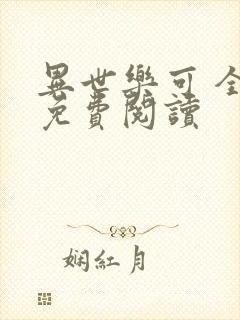 異世樂可全
免費閱讀
娴紅月